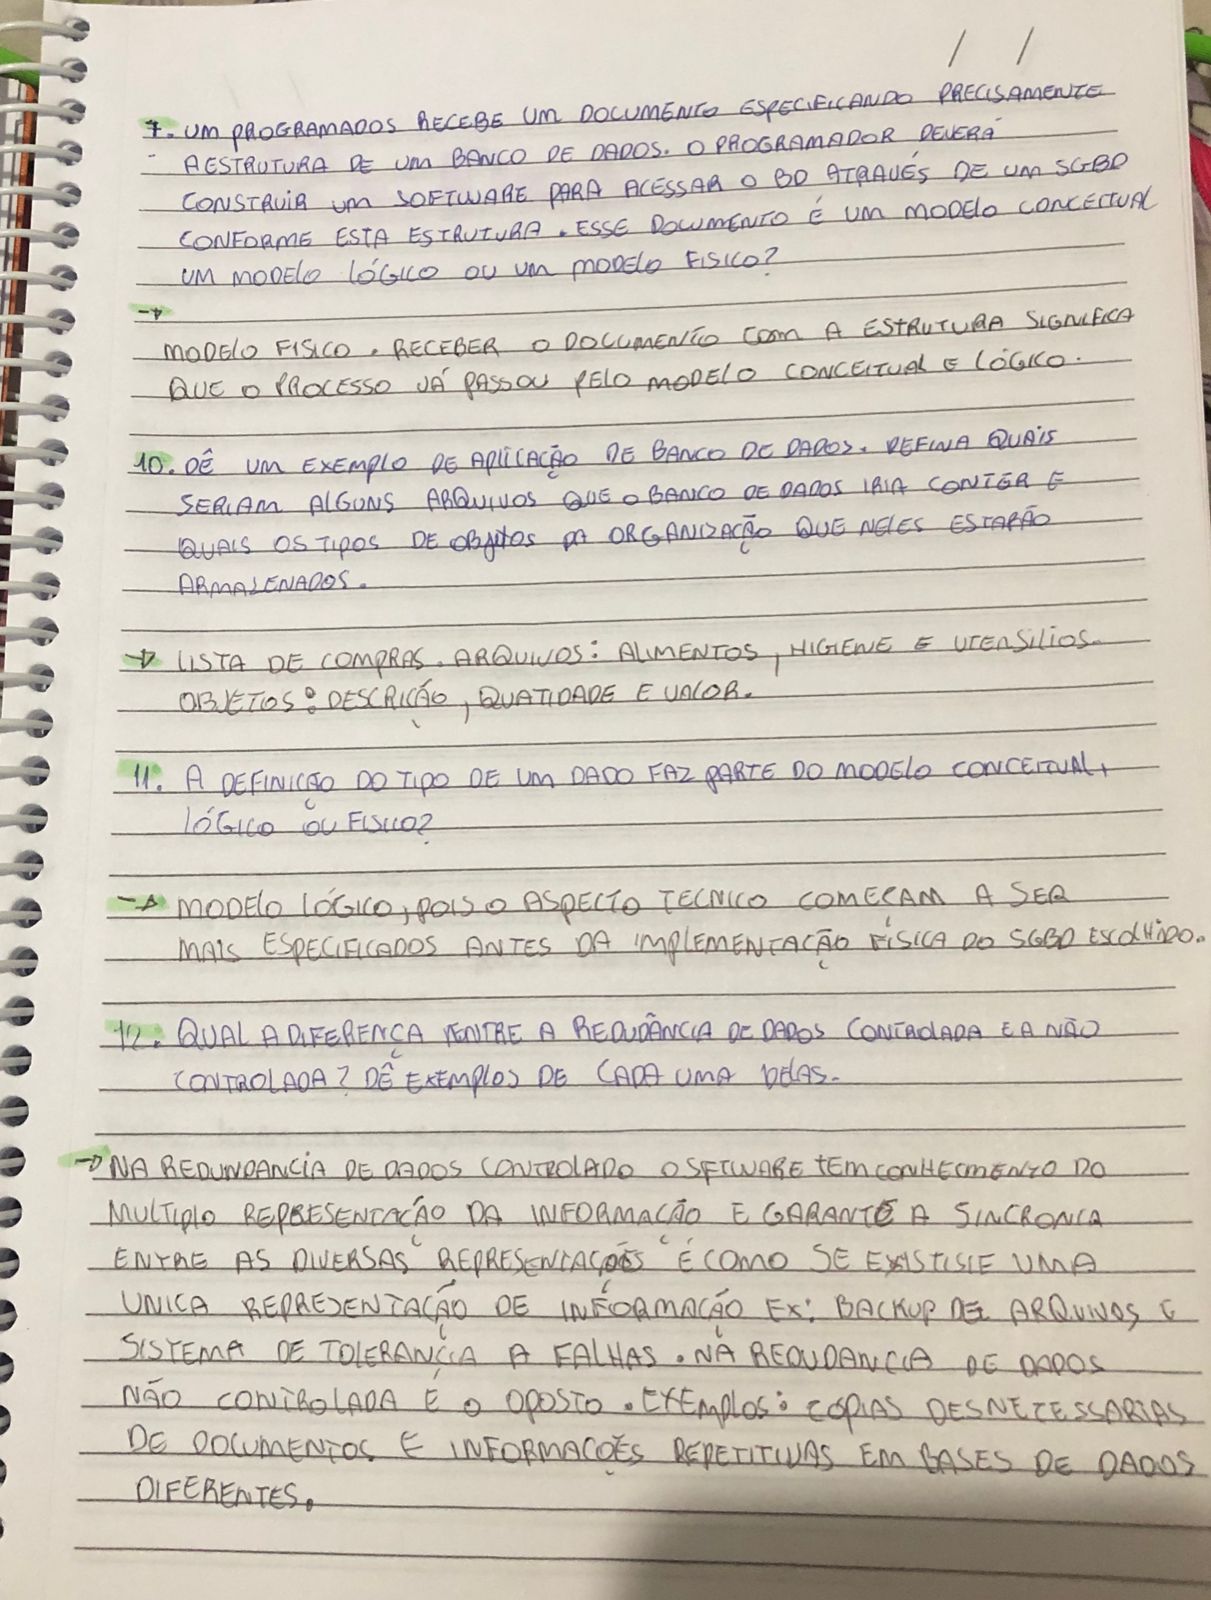 / /
7. UM PROGRAMADOS RECEBE UM DOCUMENTO ESPECIFICANDO PRECISAMENTE
A ESTRUTURA DE UM BANCO DE DADOS. O PROGRAMADOR DEVERÁ
CONSTRUIR UM SOFTWARE PARA ACESSAR O BD ATRAVÉS DE UM SGBD
CONFORME ESTA ESTRUTURA. ESSE DOCUMENTO É UM MODELO CONCEITUAL
UM MODELO LÓGICO OU UM MODELO FISICO?
→
MODELO FISICO. RECEBER O DOCUMENTO COM A ESTRUTURA SIGNIFICA
QUE O PROCESSO JÁ PASSOU PELO MODELO CONCEITUAL E LÓGICO.
10. DÊ UM EXEMPLO DE APLICAÇÃO DE BANCO DE DADOS. DEFINA QUAIS
SERIAM ALGUNS ARQUIVOS QUE O BANCO DE DADOS IRIA CONTER E
QUAIS OS TIPOS DE OBJETOS DA ORGANIZAÇÃO QUE NELES ESTARÃO
ARMAZENADOS.
→ LISTA DE COMPRAS. ARQUIVOS: ALIMENTOS, HIGIENE E UTENSILIOS.
OBJETOS: DESCRIÇÃO, QUATIDADE E VALOR.
11. A DEFINIÇÃO DO TIPO DE UM DADO FAZ PARTE DO MODELO CONCEITUAL,
LÓGICO OU FISICO?
→ MODELO LÓGICO, POIS O ASPECTO TECNICO COMEÇAM A SER
MAIS ESPECIFICADOS ANTES DA IMPLEMENTAÇÃO FÍSICA DO SGBD ESCOLHIDO.
12. QUAL A DIFERENÇA ENTRE A REDUDÂNCIA DE DADOS CONTROLADA E A NÃO
CONTROLADA? DÊ EXEMPLOS DE CADA UMA DELAS.
→ NA REDUNDANCIA DE DADOS CONTROLADO O SFTWARE TEM CONHECMENTO DO
MULTIPLO REPRESENTAÇÃO DA INFORMAÇÃO E GARANTE A SINCRONCA
ENTRE AS DIVERSAS REPRESENTAÇÕES É COMO SE EXISTISSE UMA
UNICA REPRESENTAÇÃO DE INFORMAÇÃO EX: BACKUP DE ARQUIVOS E
SISTEMA DE TOLERANCIA A FALHAS. NA REDUDANCIA DE DADOS
NÃO CONTROLADA É O OPOSTO. EXEMPLOS: COPIAS DESNECESSARIAS
DE DOCUMENTOS E INFORMAÇÕES REPETITIVAS EM BASES DE DADOS
DIFERENTES.